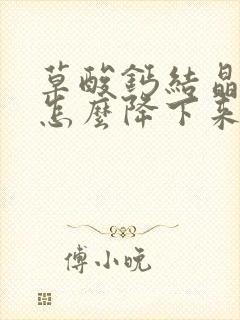 草酸鈣結晶
怎麼降下來
傅小晚